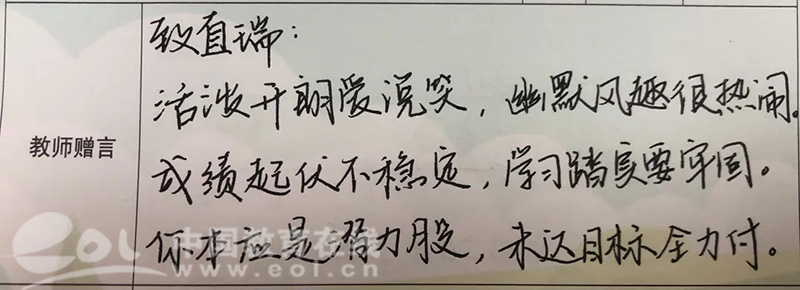 致直瑞：
活泼开朗爱说笑，幽默风趣很热闹。
教师赠言
成绩起伏不稳定，学习踏实要牢固。
你本应是潜力股，未达目标全力付。
eol 中国教育在线
www.eol.cn